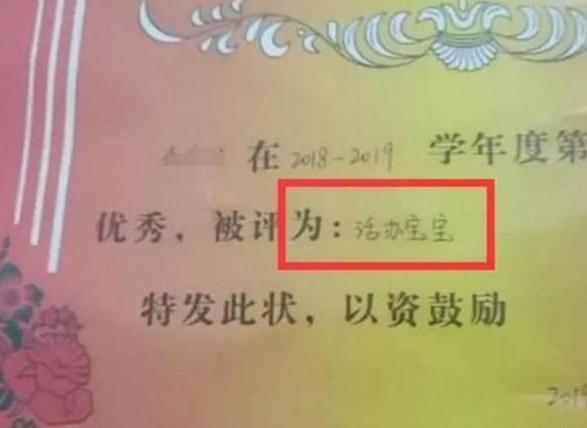 在2018-2019 学年度第
优秀，被评为：活办宝宝
特发此状，以资鼓励
2019